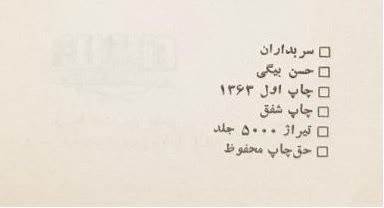 □ سربداران
□ حسن بیگی
□ چاپ اول ۱۳۶۳
□ چاپ شفق
□ تیراژ ۵۰۰۰ جلد
□ حق‌چاپ محفوظ